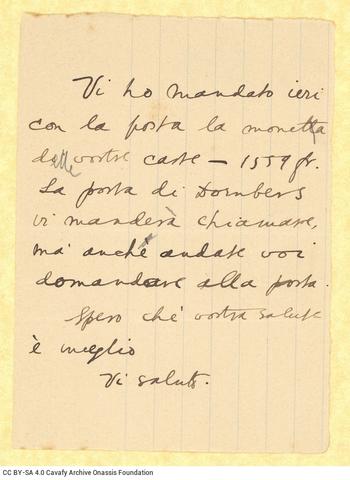 Vi ho mandato ieri
con la posta la monetta
delle vostre carte — 1559 fr.
La posta di Dornbers
vi manderà chiamare,
ma anche andate voi
domandare alla posta.
Spero che vostra salute
è meglio
Vi saluto.
CC BY-SA 4.0 Cavafy Archive Onassis Foundation